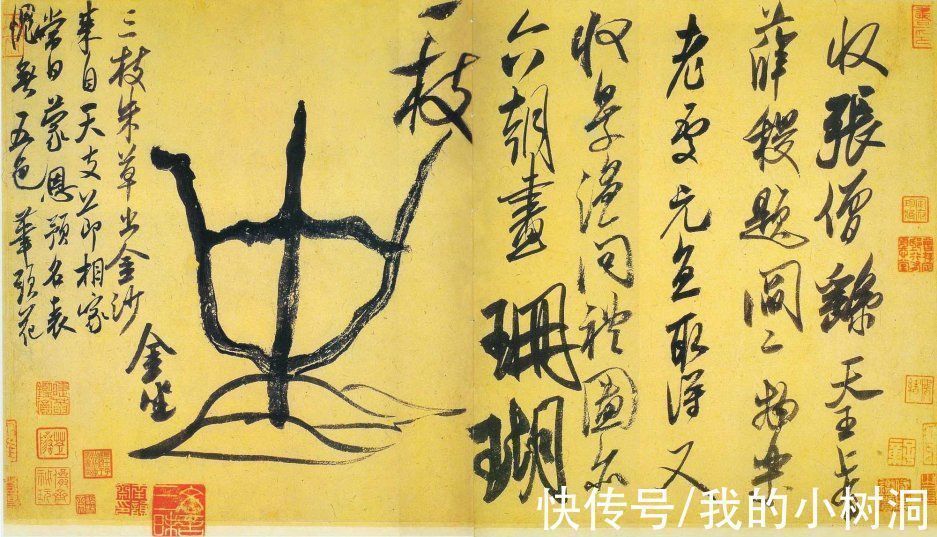 收張僧繇天王上有
薛稷題閻二物樂
老處元直取得又
收景溫問禮圖亦
六朝畫珊瑚
一枝
金坐
三枝朱草出金沙
來自天支節相家
當日蒙恩預名表
愧無五色筆頭花
快传号/我的小树洞